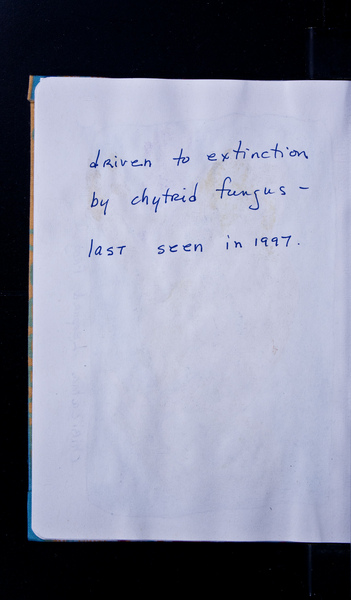 driven to extinction
by chytrid fungus -
last seen in 1997.